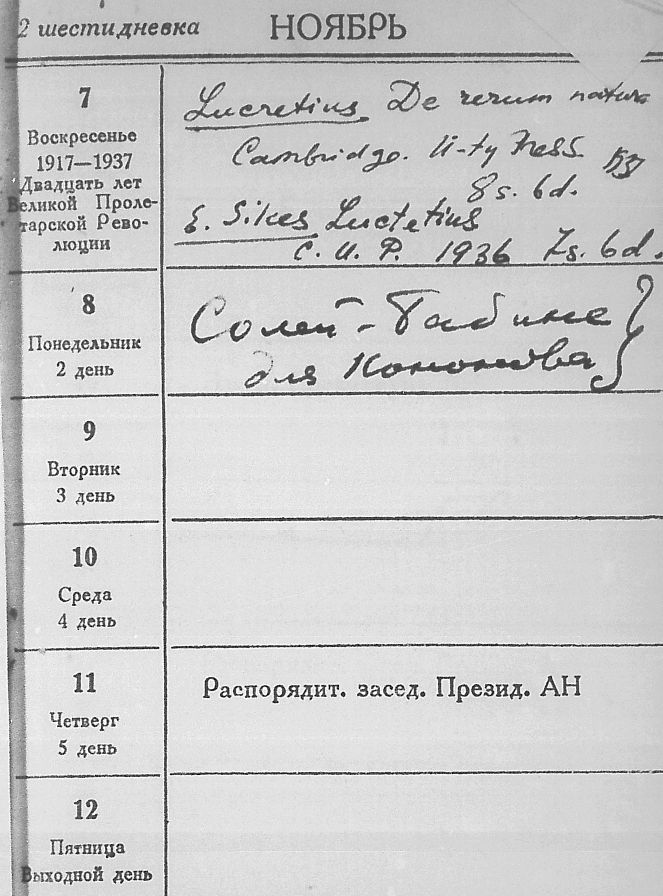 2 шестидневка
НОЯБРЬ
7
Воскресенье
1917—1937
Двадцать лет
Великой Проле-
тарской Рево-
люции
Lucretius. De rerum natura
Cambridge. U-ty Press.
8s. 6d.
E. Sikes Lucretius
C. U. P. 1936 7s. 6d.
8
Понедельник
2 день
для Кононова
9
Вторник
3 день
10
Среда
4 день
11
Четверг
5 день
Распорядит. засед. Презид. АН
12
Пятница
Выходной день